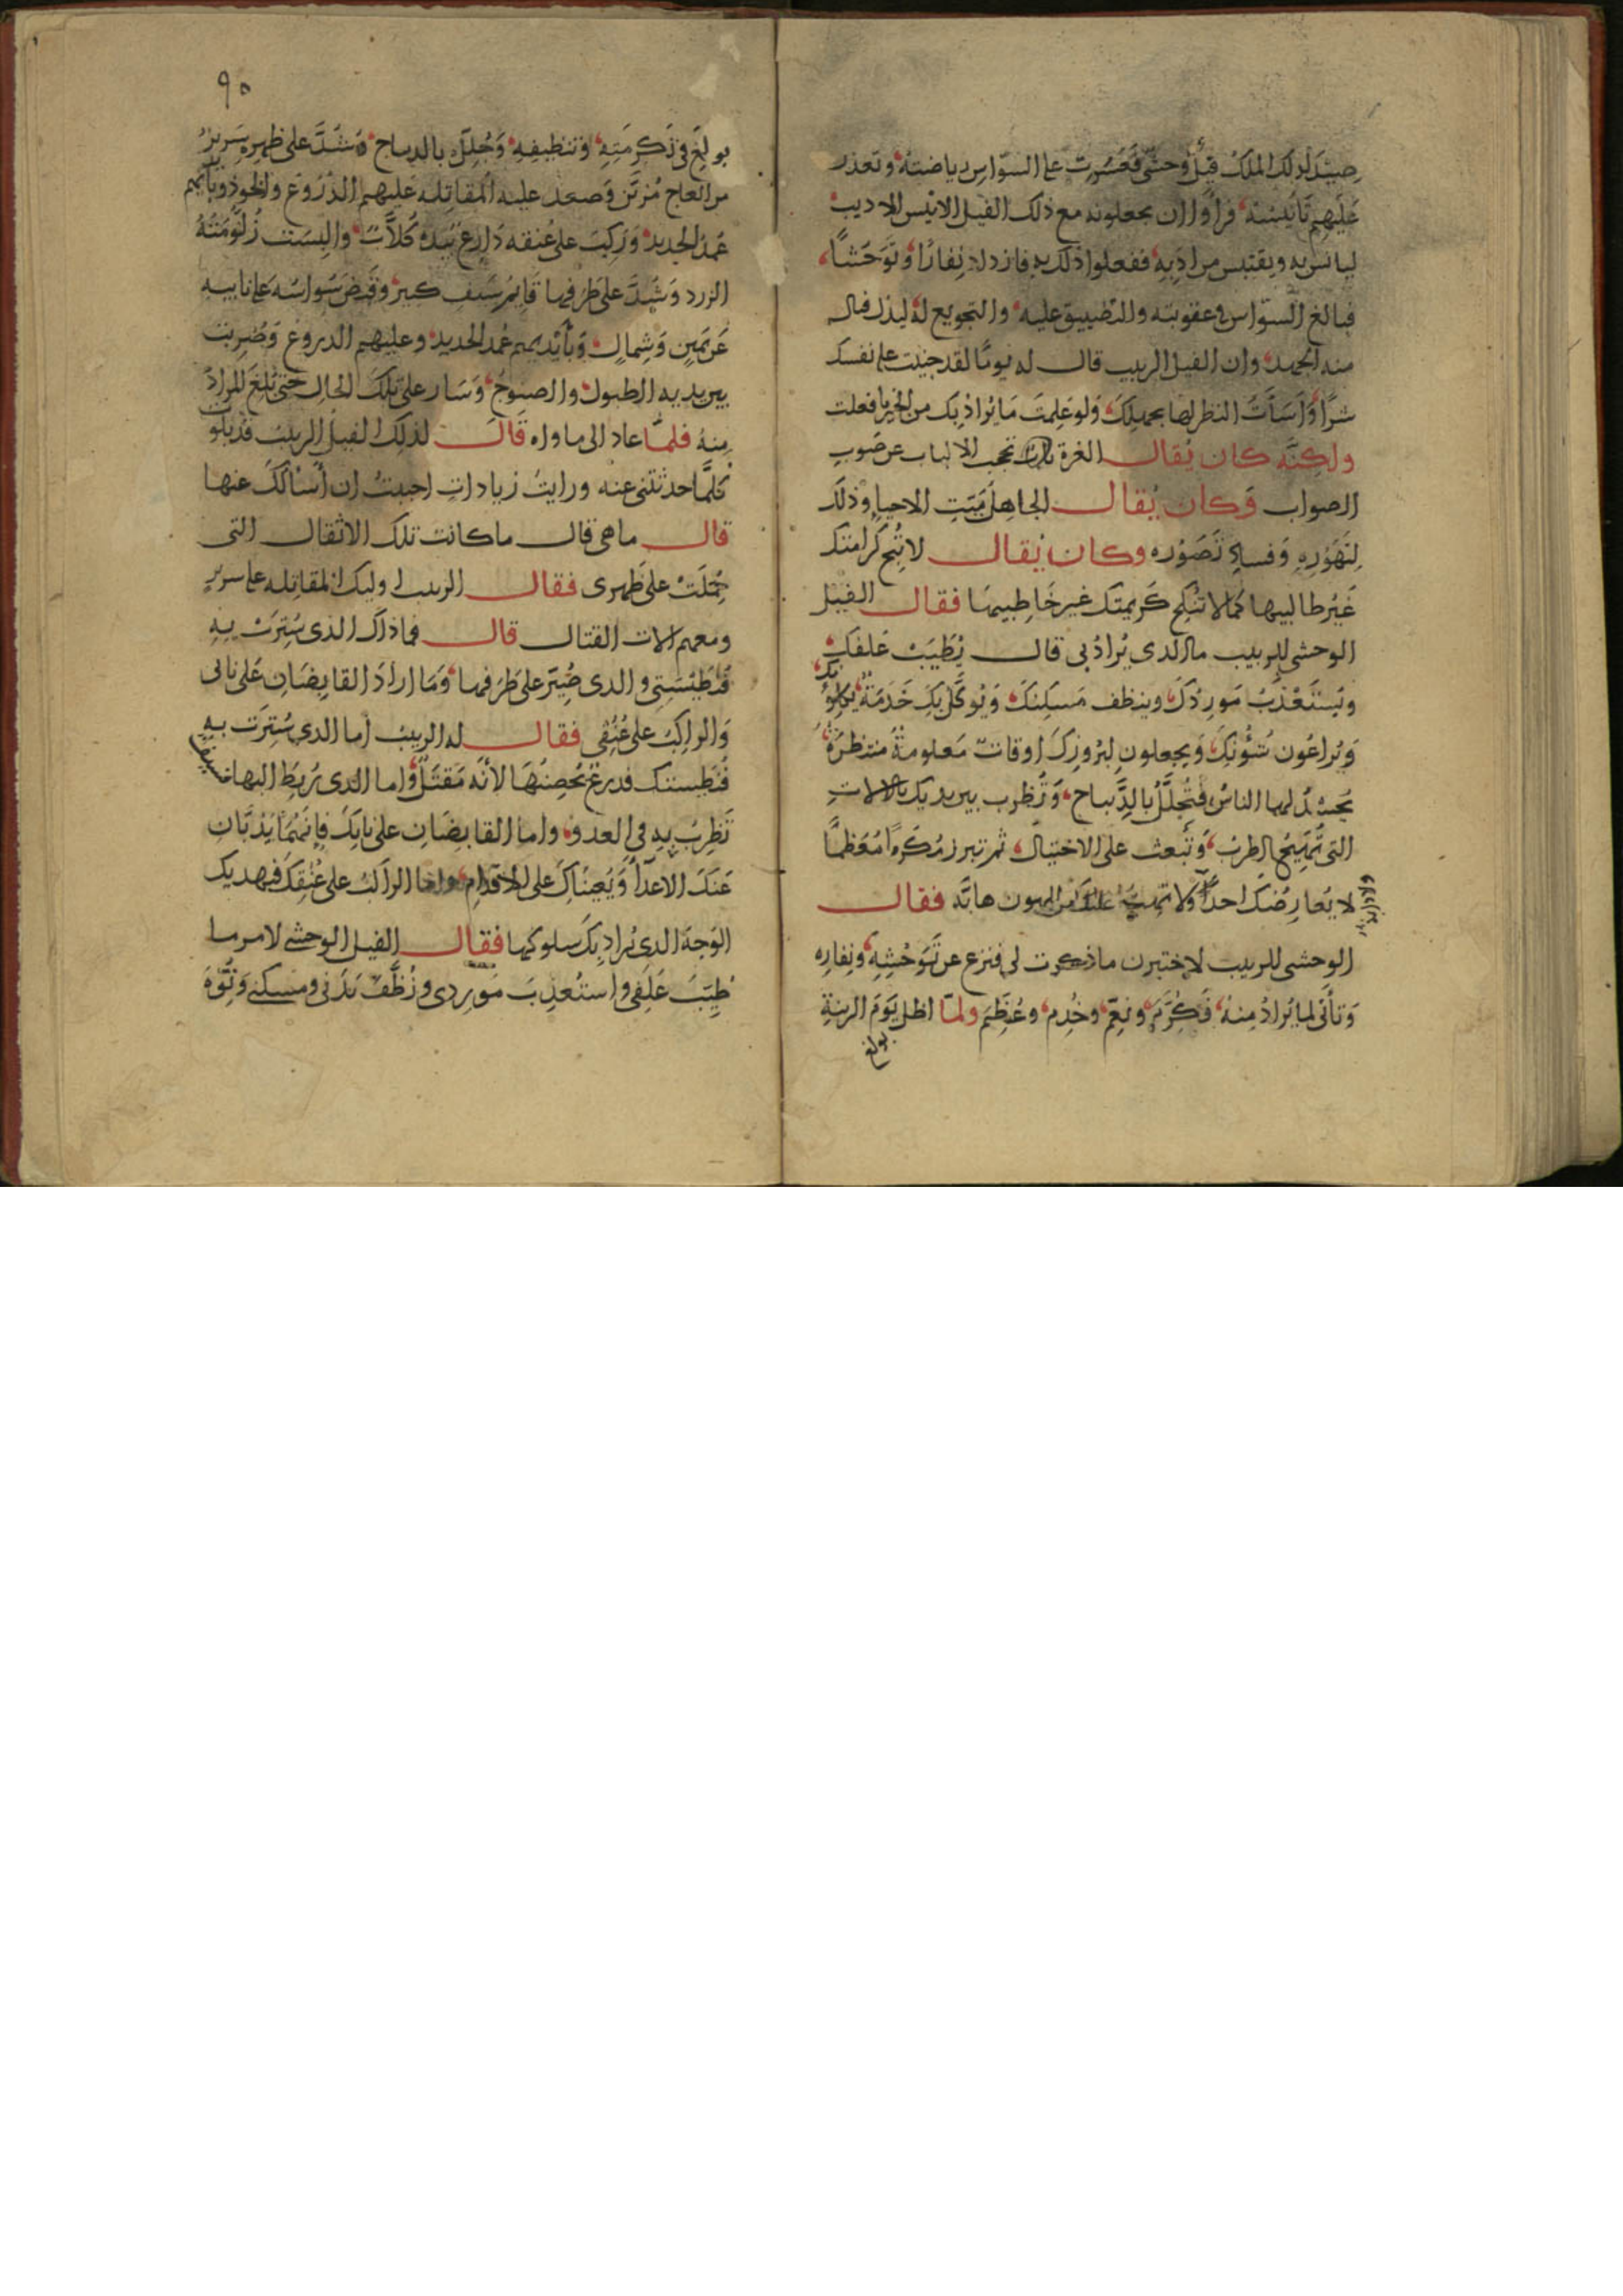 صيد لذلك الملك فيل وحشي فعسرت على السواس رياضته وتعذر
عليهم تأنيسه فرأوا ان يجعلونه مع ذلك الفيل الانيس الاديب
ليانس به ويقتبس من ادبه ففعلوا ذلك به فازداد نفارا وتوحشا
فبالغ السواس في عقوبته والتضييق عليه والتجويع له ليذل فنال
منه الجهد وان الفيل الربيب قال له يوما لقد جنيت على نفسك
شرا وأسأت النظر لها بجهلك ولو علمت ما يراد بك من الخير ما فعلت
ولكنه كان يقال الغرة تحجب الالباب عن صوب
الصواب وكان يقال الجاهل ميت الاحياء وذلك
لتهوره وفساد تصوره وكان يقال لا تبح كرامتك
غير طالبيها كما لا تنكح كريمتك غير خاطبيها فقال الفيل
الوحشي للربيب ما الذي يراد بي قال يطيب علفك
ويستعذب موردك وينظف مسكنك ويوكل بك خدمة يكلؤنك
ويراعون شؤنك ويجعلون لبروزك اوقات معلومة منتظرة
يحشد لها الناس فتجلل بالديباج وتضرب بين يديك بالالات
التي تهيج الطرب وتبعث على الاختيال ثم تبرز مكرما معظما
لا يعارضك احد ولا دابة فقال
الوحشي للربيب لاختبرن ما ذكرت لي فنزع عن توحشه ونفاره
وتأتى لما يراد منه فكرم ونعم وخدم وعظم ولما اظل يوم الزينة
بولغ
٩٠
بولغ في تكرمته وتنظيفه وجلل بالديباج وشد على ظهره سرير
من العاج مزين وصعد عليه المقاتلة عليهم الدروع والخوذ وبأيديهم
عمد الحديد وركب على عنقه دارع بيده كلاب والبست زلومته
الزرد وشد على طرفها قايم سيف كبير وقبض سواسه على نابيه
عن يمين وشمال وبأيديهم عمد الحديد وعليهم الدروع وضربت
بين يديه الطبول والصنوج وسار على تلك الحال حتى بلغ المراد
منه فلما عاد الى ماواه قال لذلك الفيل الربيب قد بلوت
كلما حدثتني عنه ورايت زيادات احببت ان أسألك عنها
قال ما هي قال ما كانت تلك الاثقال التي
حملت على ظهري فقال الربيب اوليك المقاتلة على سرير
ومعهم الات القتال قال فما ذاك الذي سترت به
فنطيستي والذي صير على طرفها وما اراد القابضان على نابي
والراكب على عنقي فقال له الربيب اما الذي سترت به
فنطيستك فدرع تحصنها لأنه مقتل واما الذي ربط اليها فسيف
تضرب به في العدو واما القابضان على نابك فإنهما يذبان
عنك الاعداء ويعيناك على الاقدام واما الراكب على عنقك فيهديك
الوجه الذي يراد بك سلوكها فقال الفيل الوحشي لامر ما
طيب علفي واستعذب موردي ونظف بدني ومسكني ونوه